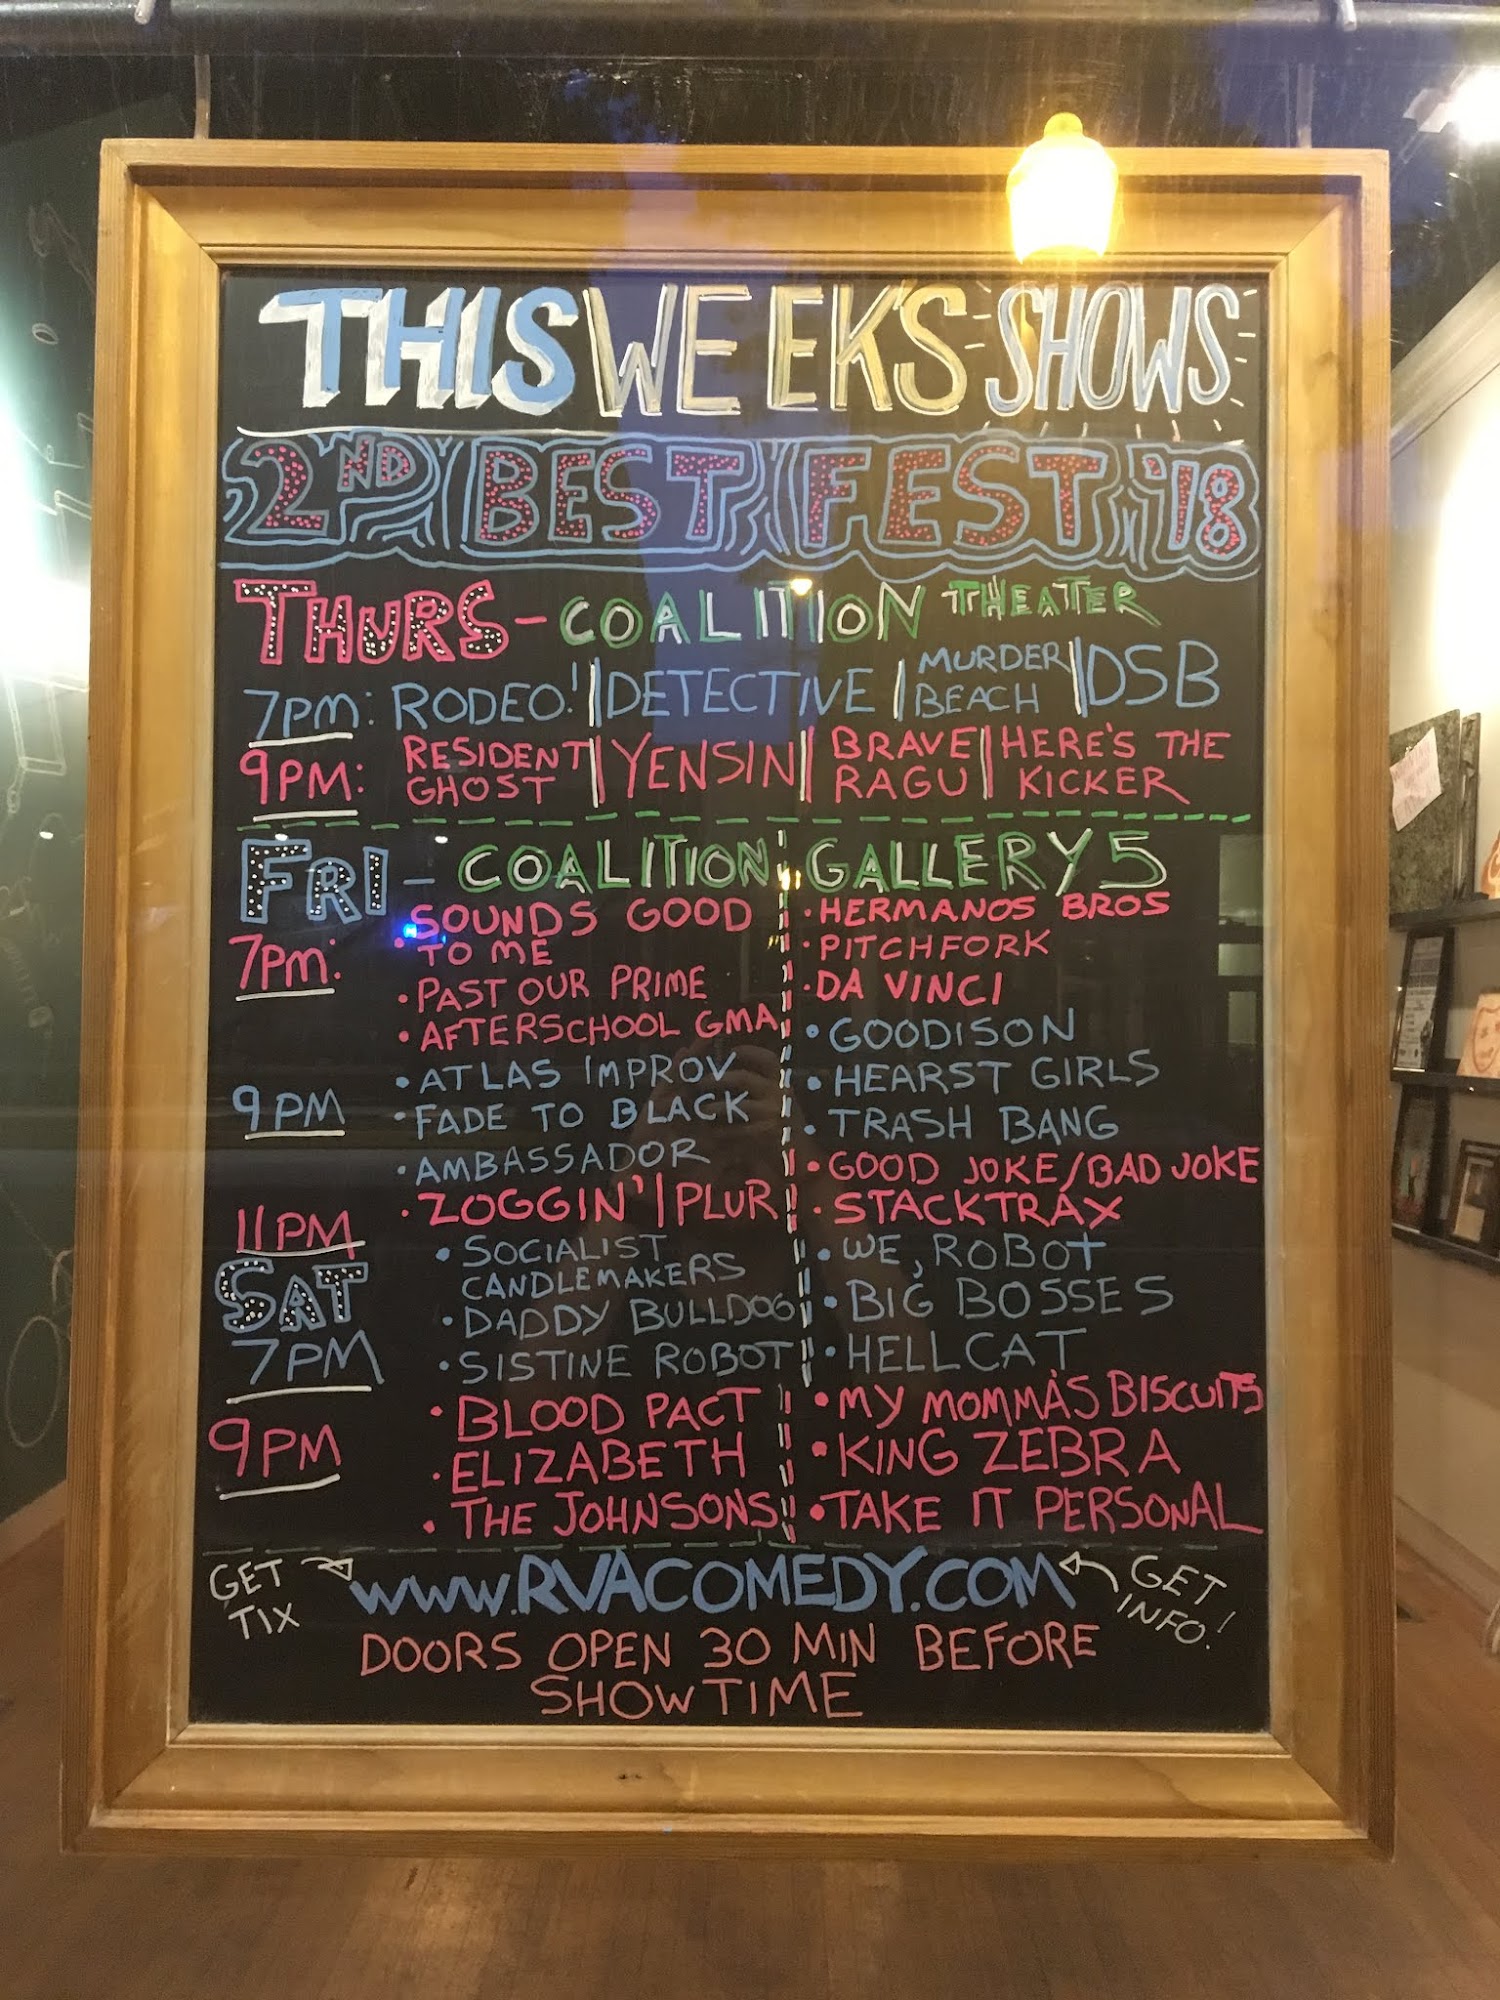 THIS WEEKS SHOWS
2ND BEST FEST '18
THURS - COALITION THEATER
7PM: RODEO! | DETECTIVE | MURDER BEACH | DSB
9PM: RESIDENT GHOST | YENSIN | BRAVE RAGU | HERE'S THE KICKER
FRI - COALITION | GALLERY 5
7PM:
• SOUNDS GOOD
TO ME
• PAST OUR PRIME
• AFTERSCHOOL GMA
• HERMANOS BROS
• PITCHFORK
• DA VINCI
9PM
• ATLAS IMPROV
• FADE TO BLACK
• AMBASSADOR
• GOODISON
• HEARST GIRLS
• TRASH BANG
11PM
• ZOGGIN' | PLUR
• GOOD JOKE/BAD JOKE
• STACKTRAX
SAT
7PM
• SOCIALIST
CANDLEMAKERS
• DADDY BULLDOG
• SISTINE ROBOT
• WE, ROBOT
• BIG BOSSES
• HELLCAT
9PM
• BLOOD PACT
• ELIZABETH
• THE JOHNSONS
• MY MOMMA'S BISCUITS
• KING ZEBRA
• TAKE IT PERSONAL
GET
TIX
www.RVACOMEDY.COM
GET
INFO!
DOORS OPEN 30 MIN BEFORE
SHOWTIME